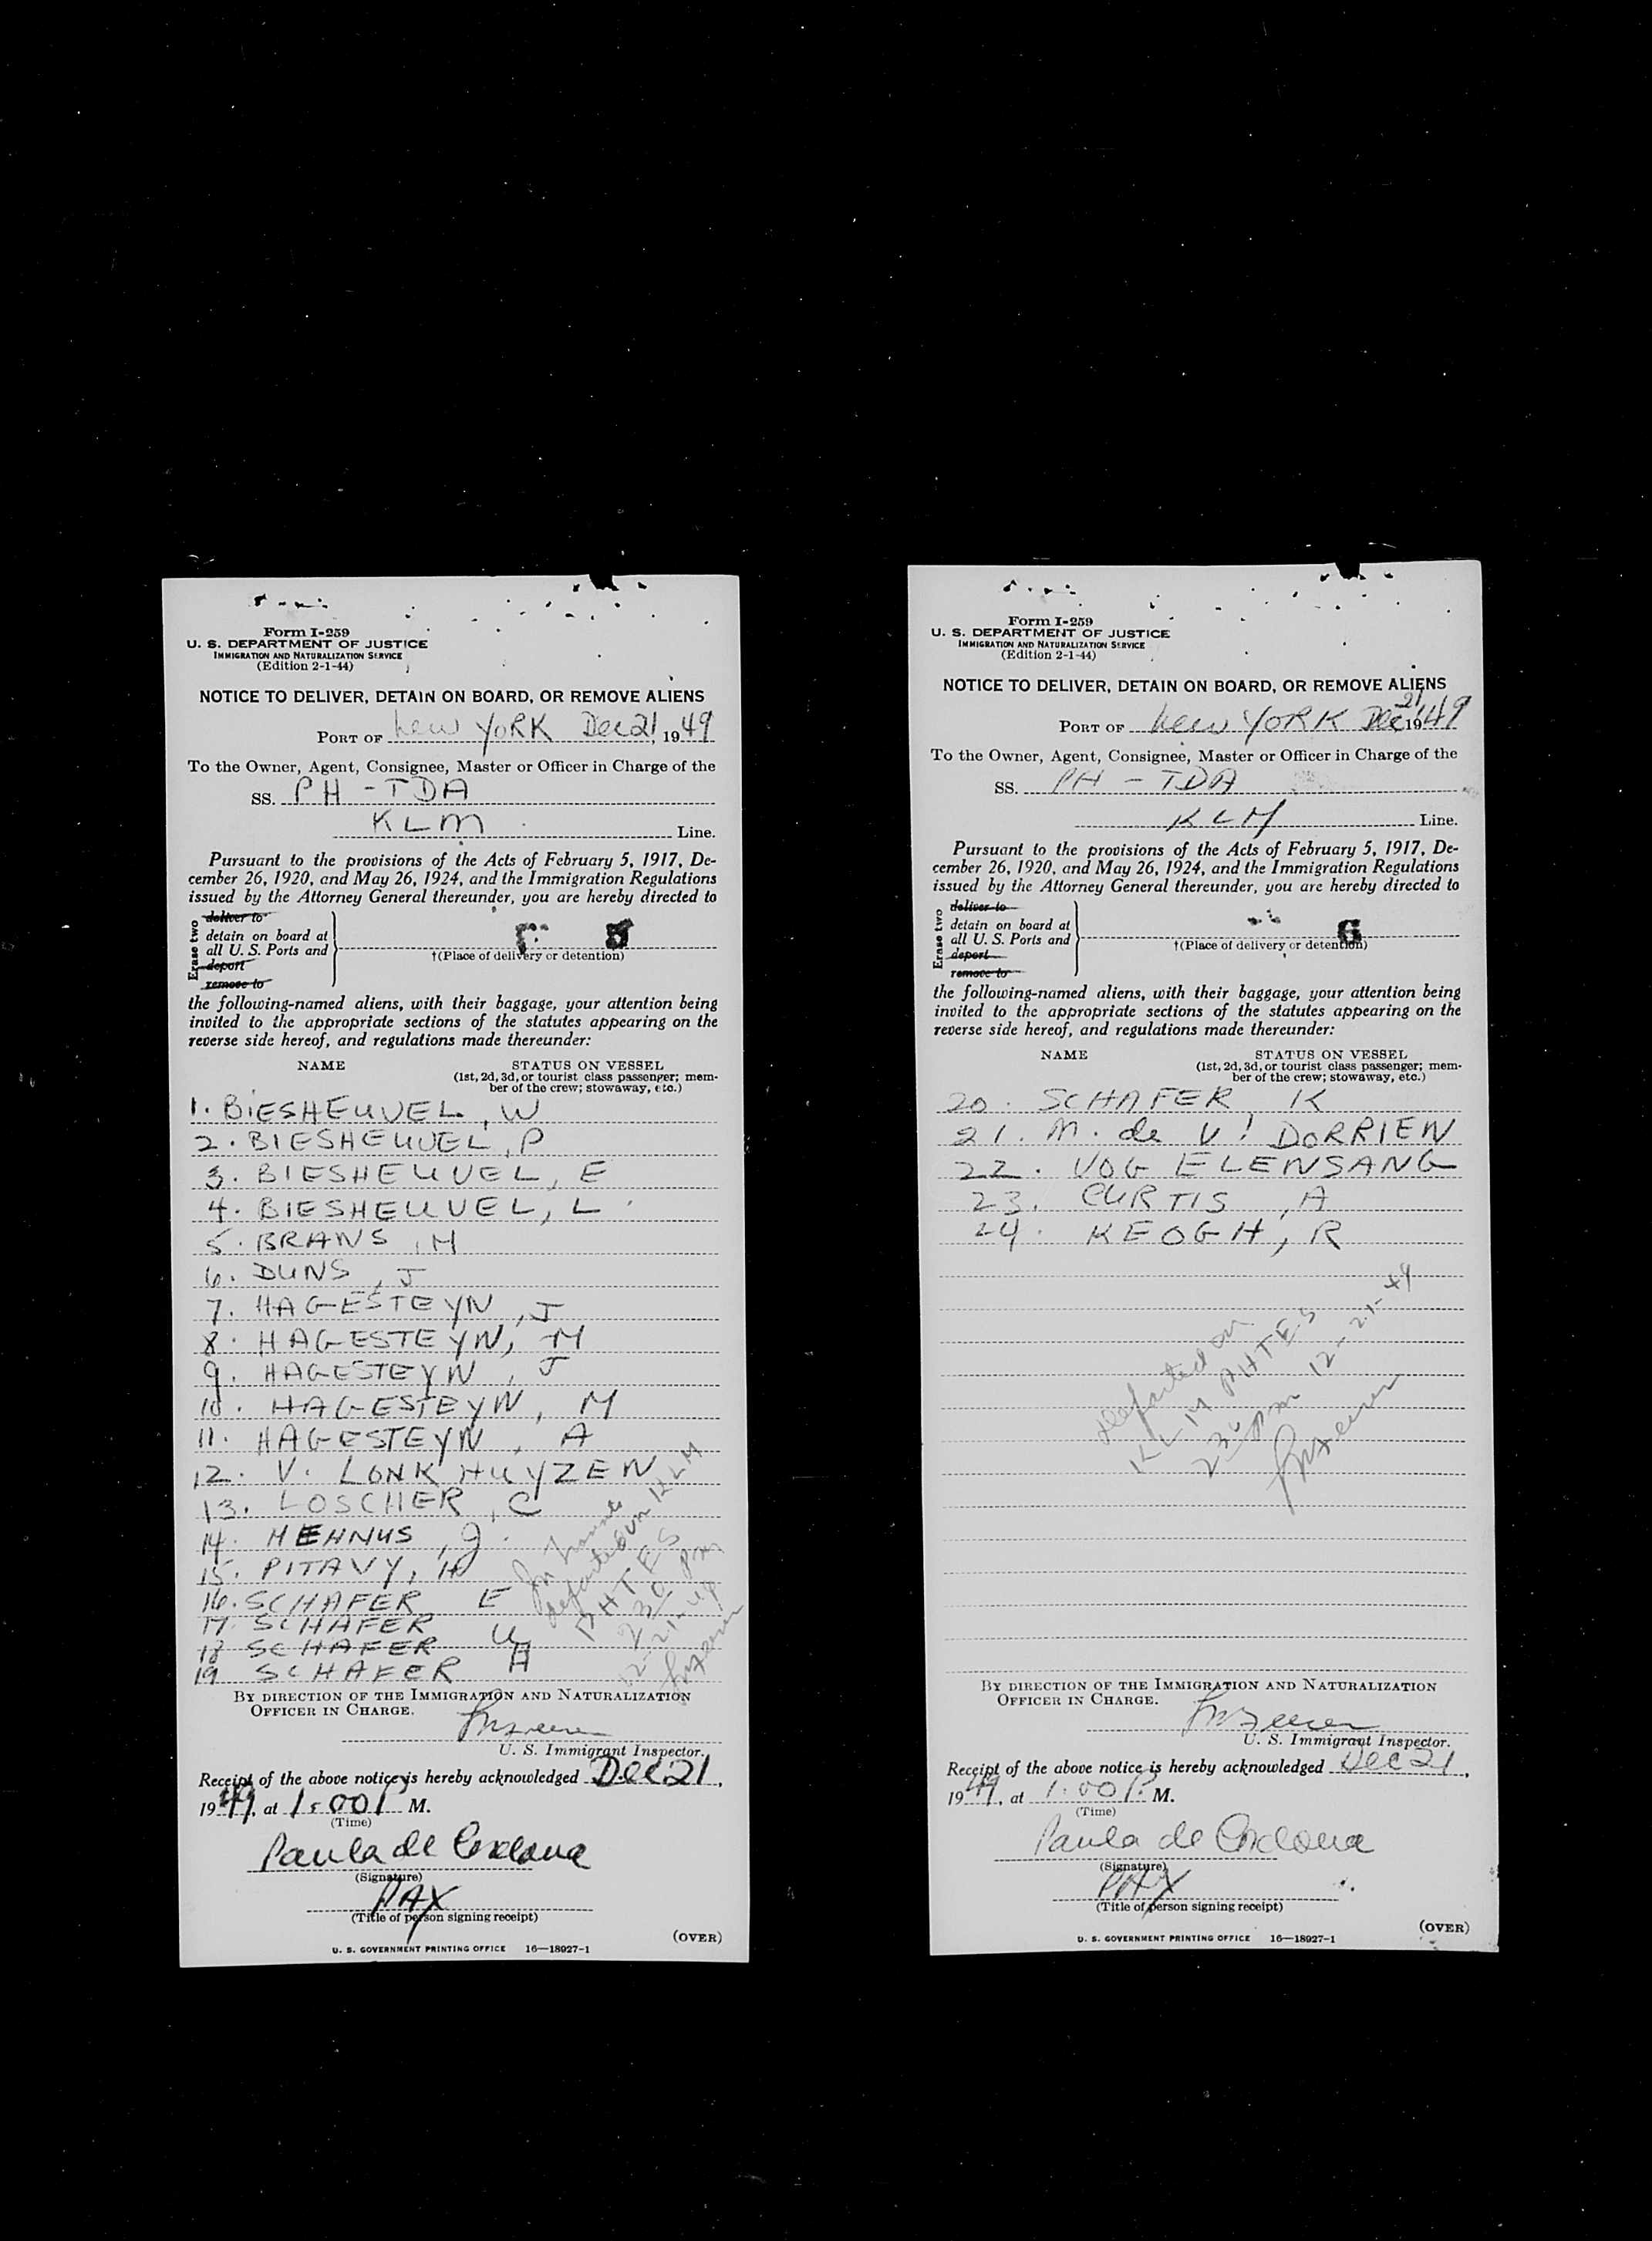 Form I-259
U. S. DEPARTMENT OF JUSTICE
IMMIGRATION AND NATURALIZATION SERVICE
(Edition 2-1-44)
NOTICE TO DELIVER, DETAIN ON BOARD, OR REMOVE ALIENS
PORT OF New YORK Dec 21, 1949
To the Owner, Agent, Consignee, Master or Officer in Charge of the
SS. PH - TDA
KLM Line.
Pursuant to the provisions of the Acts of February 5, 1917, De-
cember 26, 1920, and May 26, 1924, and the Immigration Regulations
issued by the Attorney General thereunder, you are hereby directed to
Erase two
deliver to
detain on board at
all U. S. Ports and
deport
remove to
5
†(Place of delivery or detention)
the following-named aliens, with their baggage, your attention being
invited to the appropriate sections of the statutes appearing on the
reverse side hereof, and regulations made thereunder:
NAME STATUS ON VESSEL
(1st, 2d, 3d, or tourist class passenger; mem-
ber of the crew; stowaway, etc.)
1. BIESHEUVEL, W
2. BIESHEUVEL, P
3. BIESHEUVEL, E
4. BIESHEUVEL, L
5. BRANS, M
6. DUNS, J
7. HAGESTEYN, J
8. HAGESTEYN, M
9. HAGESTEYN, J
10. HAGESTEYN, M
11. HAGESTEYN, A
12. V. LONKHUYZEN
13. LOSCHER, C
14. MEHNUS, J.
15. PITAVY, H
16. SCHAFER E
17. SCHAFER
18 SCHAFER U
19 SCHAFER H
departed on KLM
PHTES
230 pm
12-21-49
BY DIRECTION OF THE IMMIGRATION AND NATURALIZATION
OFFICER IN CHARGE.
U. S. Immigrant Inspector.
Receipt of the above notice is hereby acknowledged Dec 21,
1949, at 1:00 P M.
(Time)
Paula de Cordova
(Signature)
PAX
(Title of person signing receipt)
(OVER)
U. S. GOVERNMENT PRINTING OFFICE 16—18927-1
Form I-259
U. S. DEPARTMENT OF JUSTICE
IMMIGRATION AND NATURALIZATION SERVICE
(Edition 2-1-44)
NOTICE TO DELIVER, DETAIN ON BOARD, OR REMOVE ALIENS
PORT OF New YORK Dec 21, 1949
To the Owner, Agent, Consignee, Master or Officer in Charge of the
SS. PH - TDA
KLM Line.
Pursuant to the provisions of the Acts of February 5, 1917, De-
cember 26, 1920, and May 26, 1924, and the Immigration Regulations
issued by the Attorney General thereunder, you are hereby directed to
Erase two
deliver to
detain on board at
all U. S. Ports and
deport
remove to
6
†(Place of delivery or detention)
the following-named aliens, with their baggage, your attention being
invited to the appropriate sections of the statutes appearing on the
reverse side hereof, and regulations made thereunder:
NAME STATUS ON VESSEL
(1st, 2d, 3d, or tourist class passenger; mem-
ber of the crew; stowaway, etc.)
20. SCHAFER K
21. M. de V! DORRIEN
22. VOGELENSANG
23. CURTIS, A
24. KEOGH, R
departed on
KLM PHTES
230 pm 12-21-49
BY DIRECTION OF THE IMMIGRATION AND NATURALIZATION
OFFICER IN CHARGE.
U. S. Immigrant Inspector.
Receipt of the above notice is hereby acknowledged Dec 21,
1949, at 1:00 P. M.
(Time)
Paula de Cordova
(Signature)
PAX
(Title of person signing receipt)
(OVER)
U. S. GOVERNMENT PRINTING OFFICE 16—18927-1